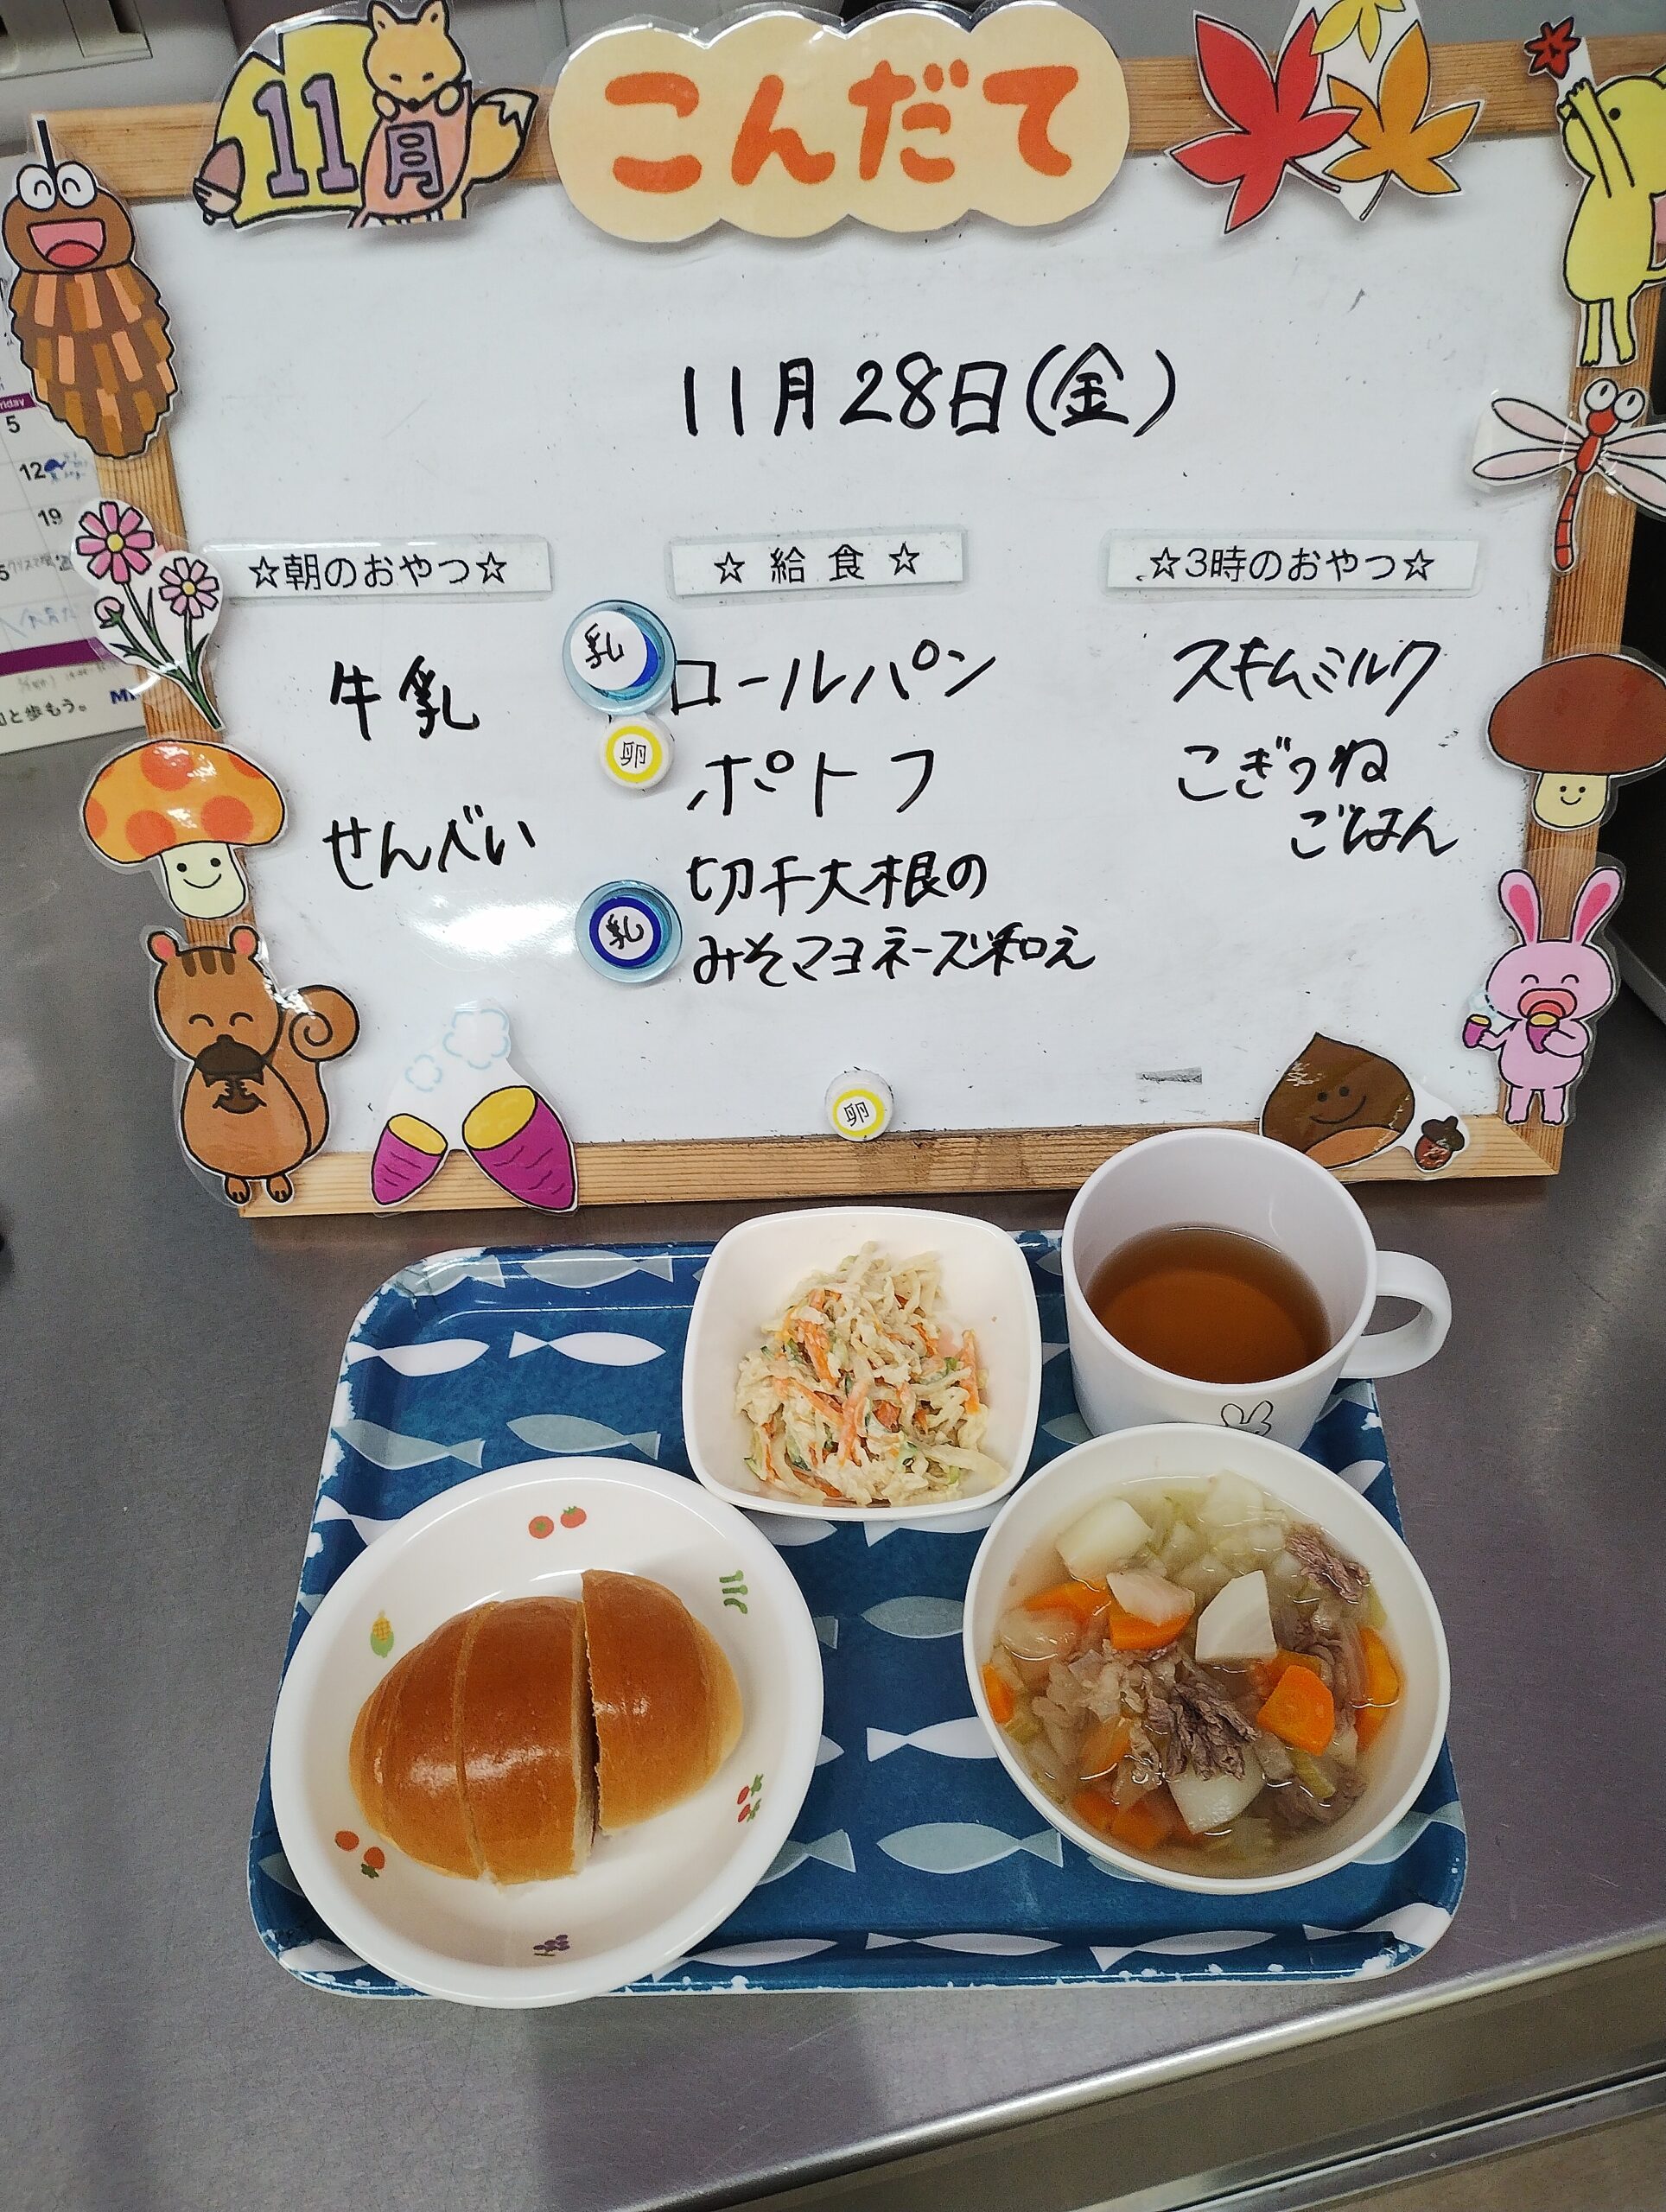 11月
こんだて
11月28日(金)
☆朝のおやつ☆
牛乳
せんべい
☆給食☆
乳
ロールパン
卵
ポトフ
切干大根の
乳
みそマヨネーズ和え
卵
☆3時のおやつ☆
スキムミルク
こぎつね
ごはん
5
12
19
と歩もう。